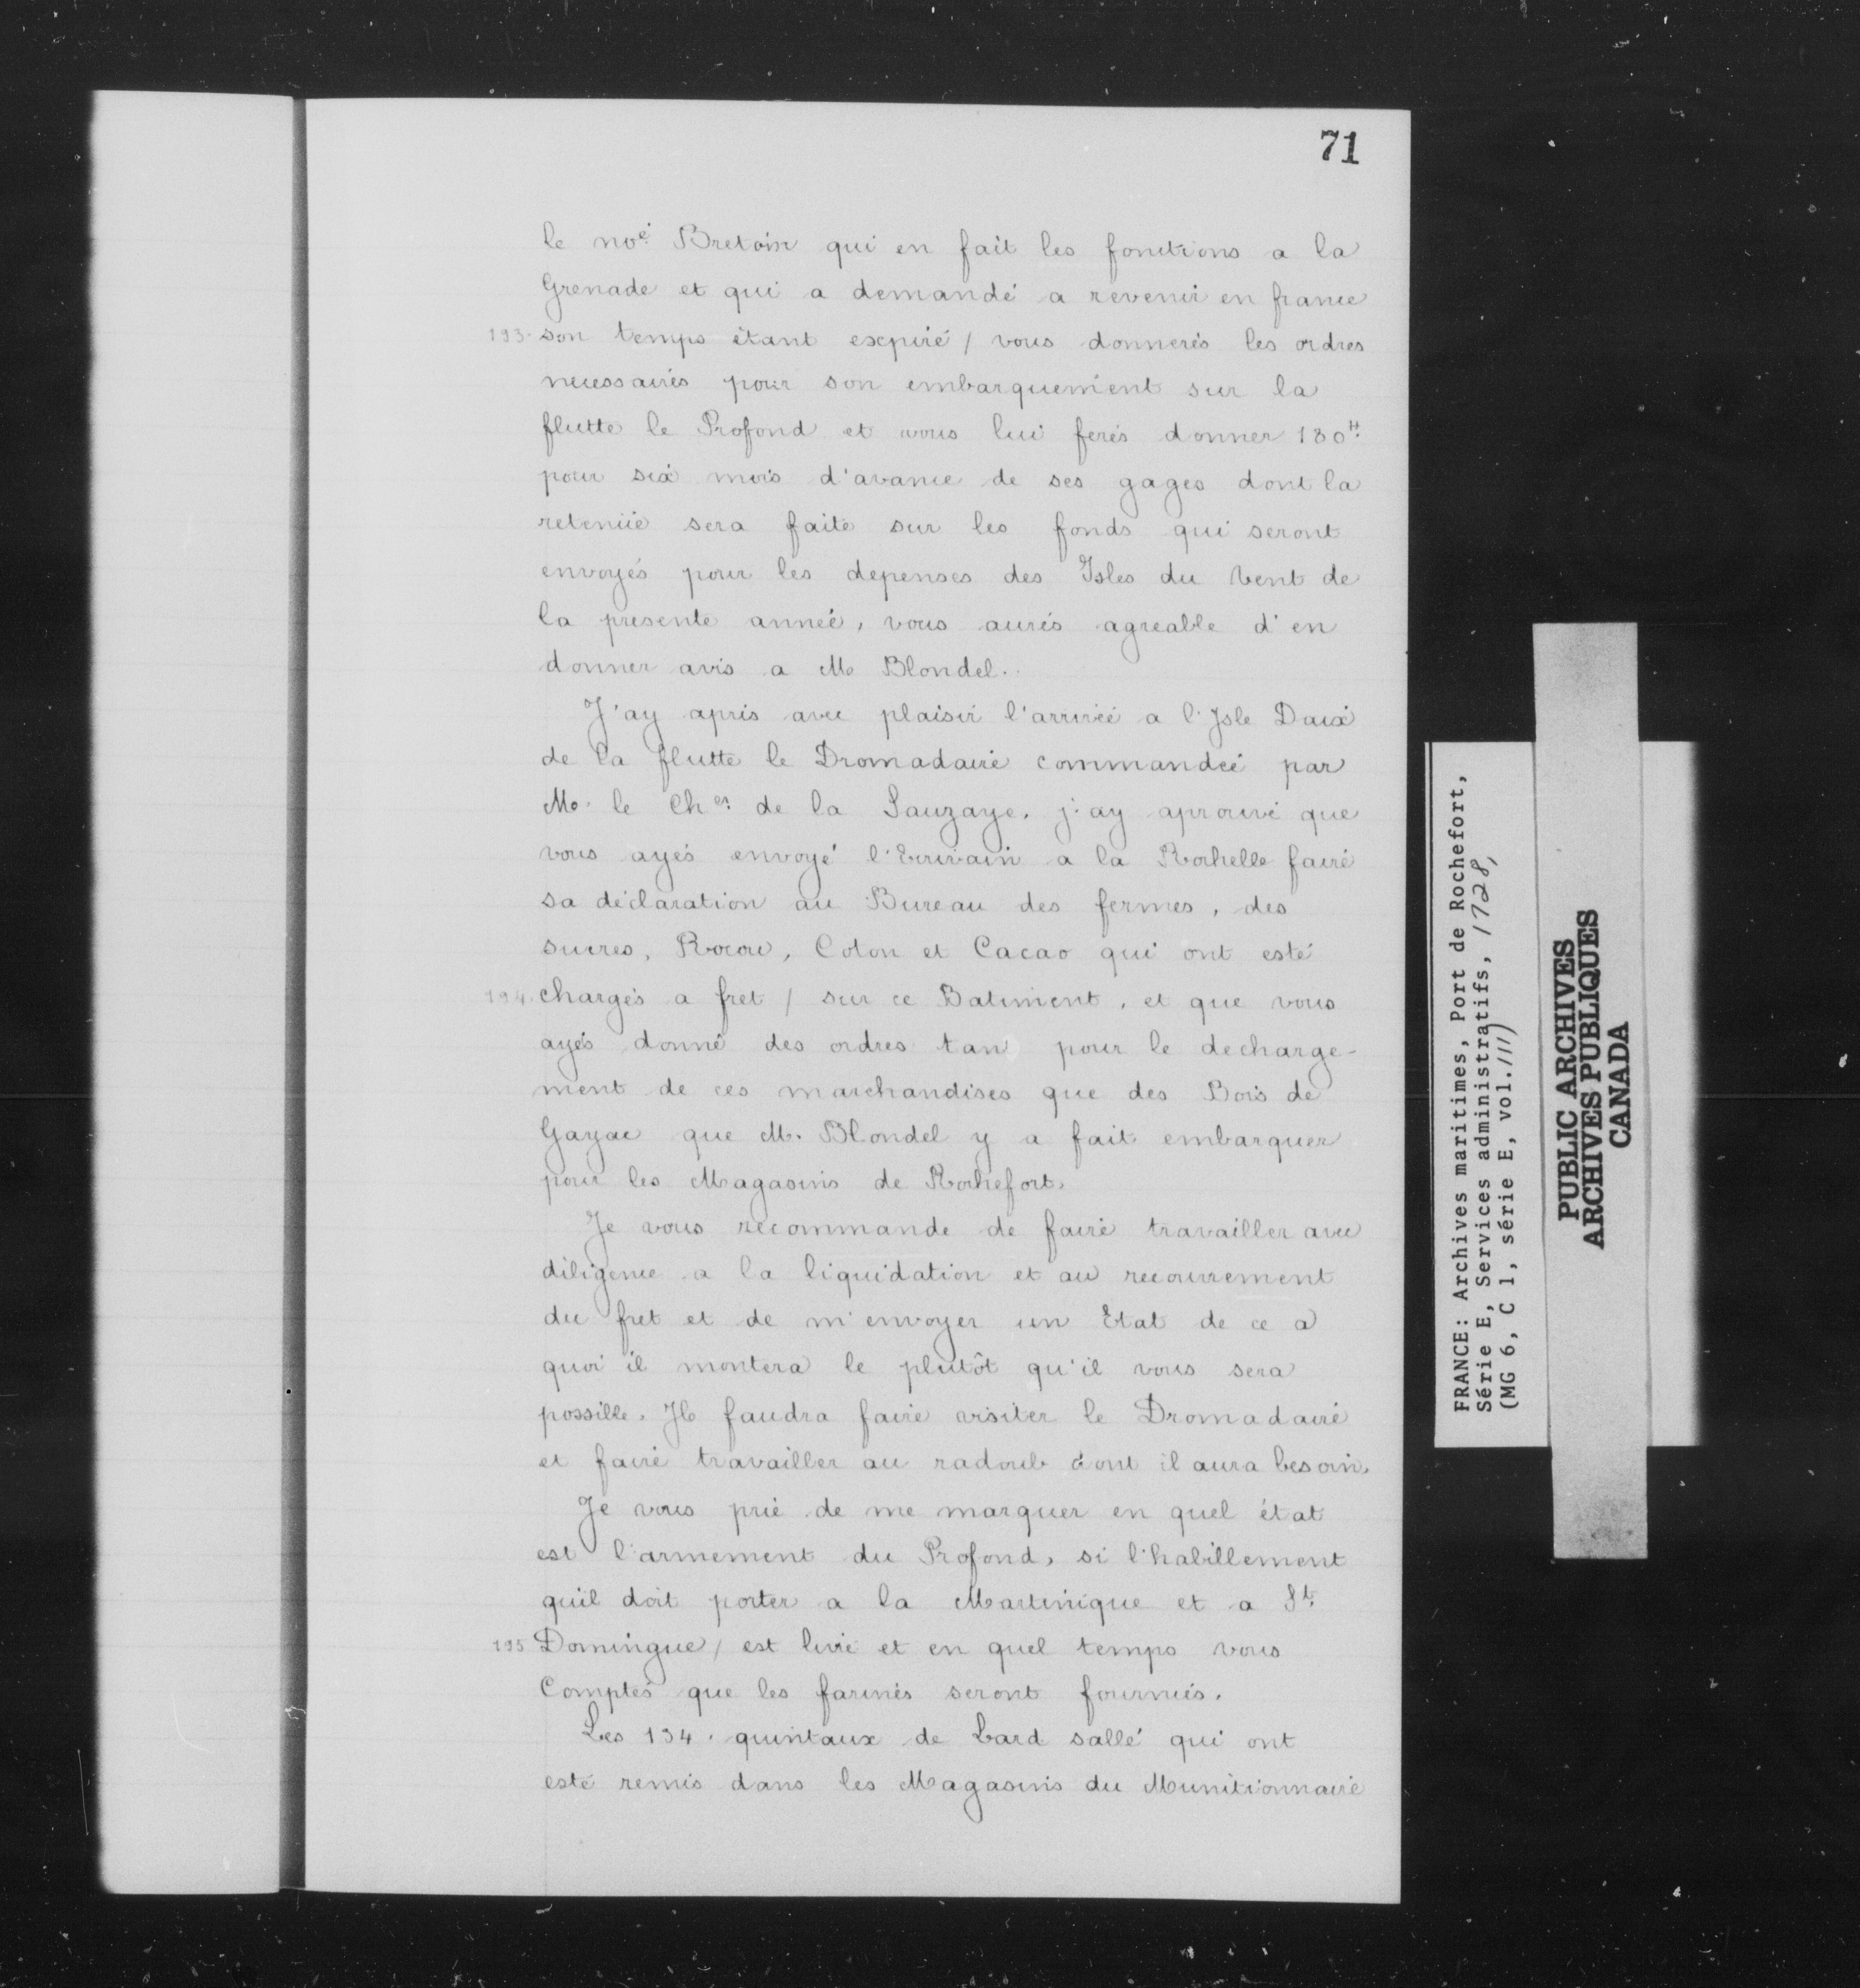 71
le no.é Bretoin qui en fait les fonctions a la
Grenade et qui a demandé a revenir en france
193. son temps étant expiré / vous donnerés les ordres
necessaires pour son embarquement sur la
flutte le Profond et vous lui ferés donner 180tt
pour six mois d'avance de ses gages dont la
retenüe sera faite sur les fonds qui seront
envoyés pour les depenses des Isles du Vent de
la presente année, vous aurés agreable d'en
donner avis a M Blondel.
J'ay apris avec plaisir l'arrivée a l'Isle Daix
de la flutte le Dromadaire commandée par
M. le Cher de la Sauzaye. j'ay aprouvé que
vous ayés envoyé l'Ecrivain a la Rochelle faire
sa déclaration au Bureau des fermes, des
sucres, Rocou, Coton et Cacao qui ont esté
194. chargés a fret / sur ce Batiment, et que vous
ayés donné des ordres tan pour le decharge-
ment de ces marchandises que des Bois de
Gayac que M. Blondel y a fait embarquer
pour les Magasins de Rochefort.
Je vous recommande de faire travailler avec
diligence a la liquidation et au recouvrement
du fret et de m'envoyer un Etat de ce a
quoi il montera le plutôt qu'il vous sera
possible. Il faudra faire visiter le Dromadaire
et faire travailler au radoub dont il aura besoin.
Je vous prie de me marquer en quel état
est l'armement du Profond, si l'habillement
quil doit porter a la Martinique et a St.
195 Domingue / est livré et en quel temps vous
Comptés que les farines seront fournies.
Les 134. quintaux de Lard sallé qui ont
esté remis dans les Magasins du Munitionnaire
FRANCE: Archives maritimes, Port de Rochefort,
Série E, Services administratifs, 1728,
(MG 6, C 1, série E, vol. 111)
PUBLIC ARCHIVES
ARCHIVES PUBLIQUES
CANADA